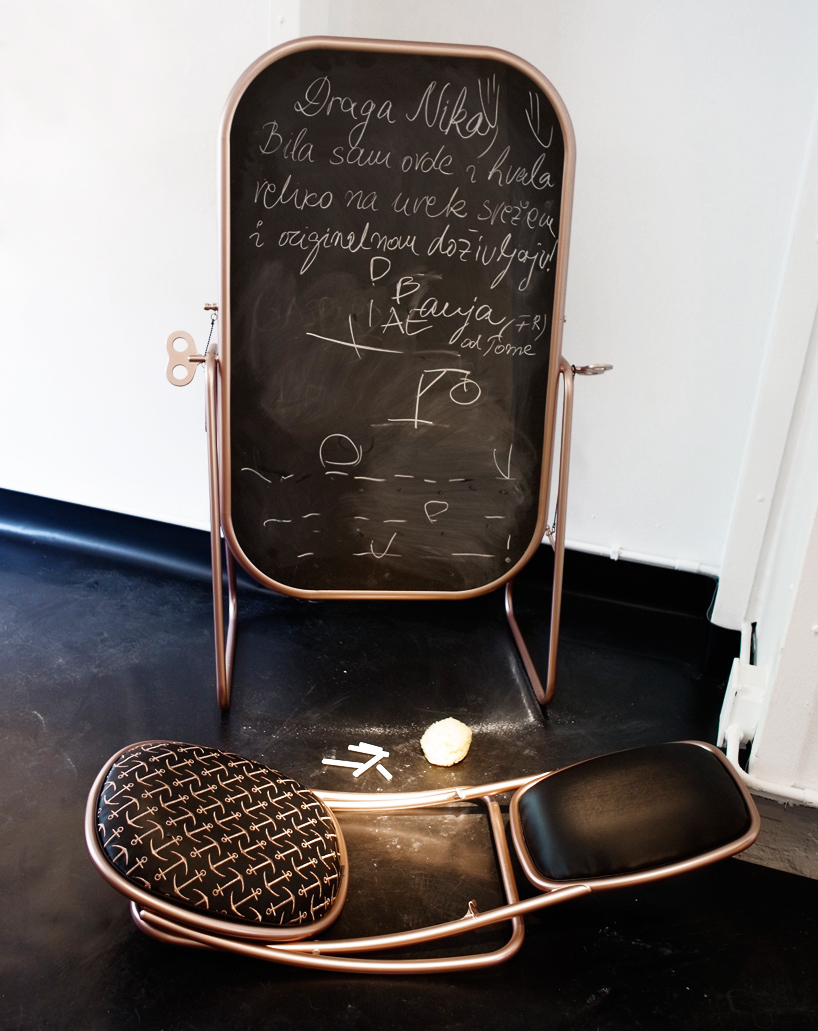 Draga Nika
Bila sam ovde i hvala
veliko na uvek svežem
i originalnom doživljaju!
D
B
I AE anja (FR)
od Tome
P